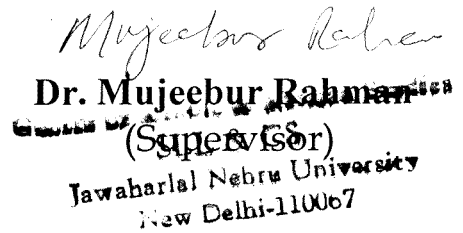 Mujeebur Rahman
Dr. Mujeebur Rahman
(Supervisor)
SLL & CS
Jawaharlal Nehru University
New Delhi-110067